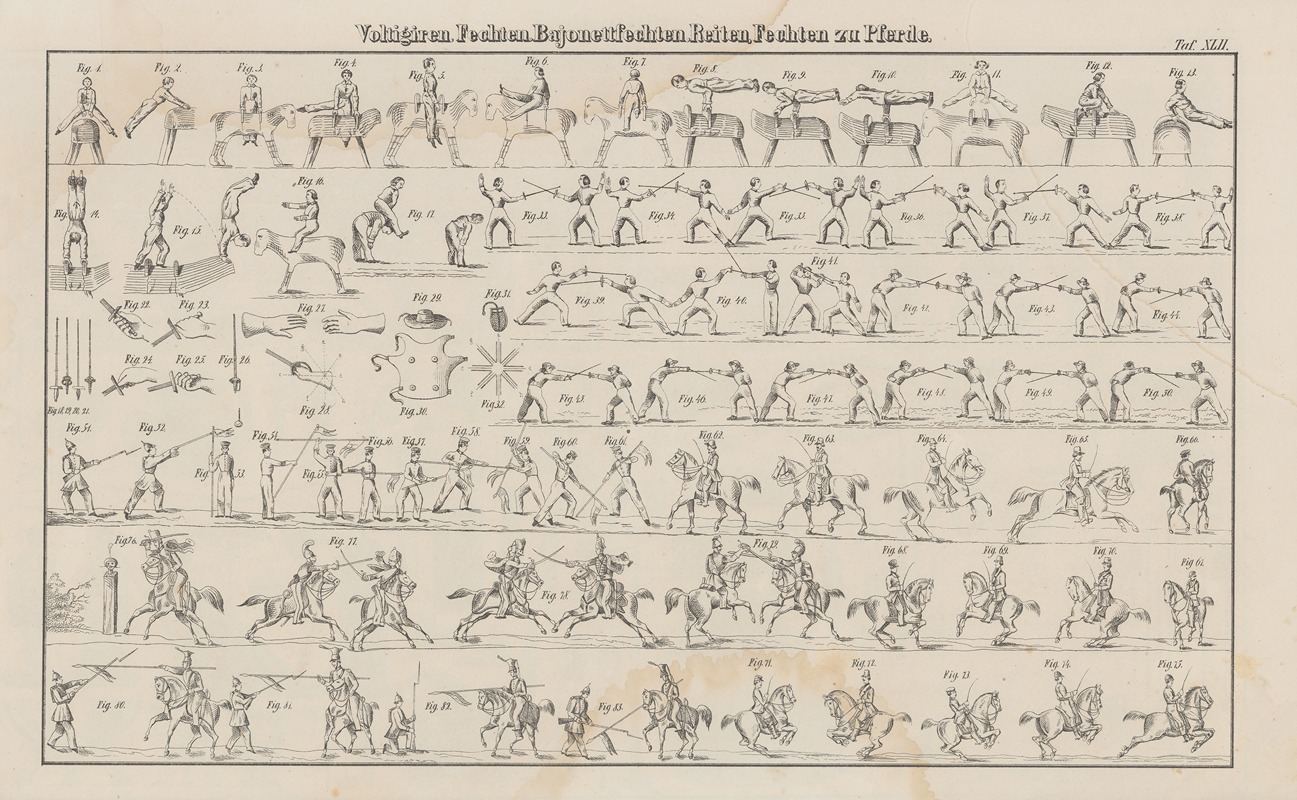 Voltigiren, Fechten, Bajonettfechten, Reiten, Fechten zu Pferde.
Taf. XLII.
Fig. 1. Fig. 2. Fig. 3. Fig. 4. Fig. 5. Fig. 6. Fig. 7. Fig. 8. Fig. 9. Fig. 10. Fig. 11. Fig. 12. Fig. 13.
Fig. 14. Fig. 15. Fig. 16. Fig. 17. Fig. 33. Fig. 34. Fig. 35. Fig. 36. Fig. 37. Fig. 38.
Fig. 39. Fig. 40. Fig. 41. Fig. 42. Fig. 43. Fig. 44.
Fig. 22. Fig. 23. Fig. 27. Fig. 29. Fig. 31.
Fig. 24. Fig. 25. Fig. 26.
Fig. 18, 19, 20, 21. Fig. 28. Fig. 30. Fig. 32. Fig. 45. Fig. 46. Fig. 47. Fig. 48. Fig. 49. Fig. 50.
Fig. 51. Fig. 52. Fig. 53. Fig. 54. Fig. 55. Fig. 56. Fig. 57. Fig. 58. Fig. 59. Fig. 60. Fig. 61. Fig. 62. Fig. 63. Fig. 64. Fig. 65. Fig. 66.
Fig. 76. Fig. 77. Fig. 78. Fig. 79. Fig. 68. Fig. 69. Fig. 70. Fig. 67.
Fig. 80. Fig. 81. Fig. 82. Fig. 83. Fig. 71. Fig. 72. Fig. 73 Fig. 74. Fig. 75.